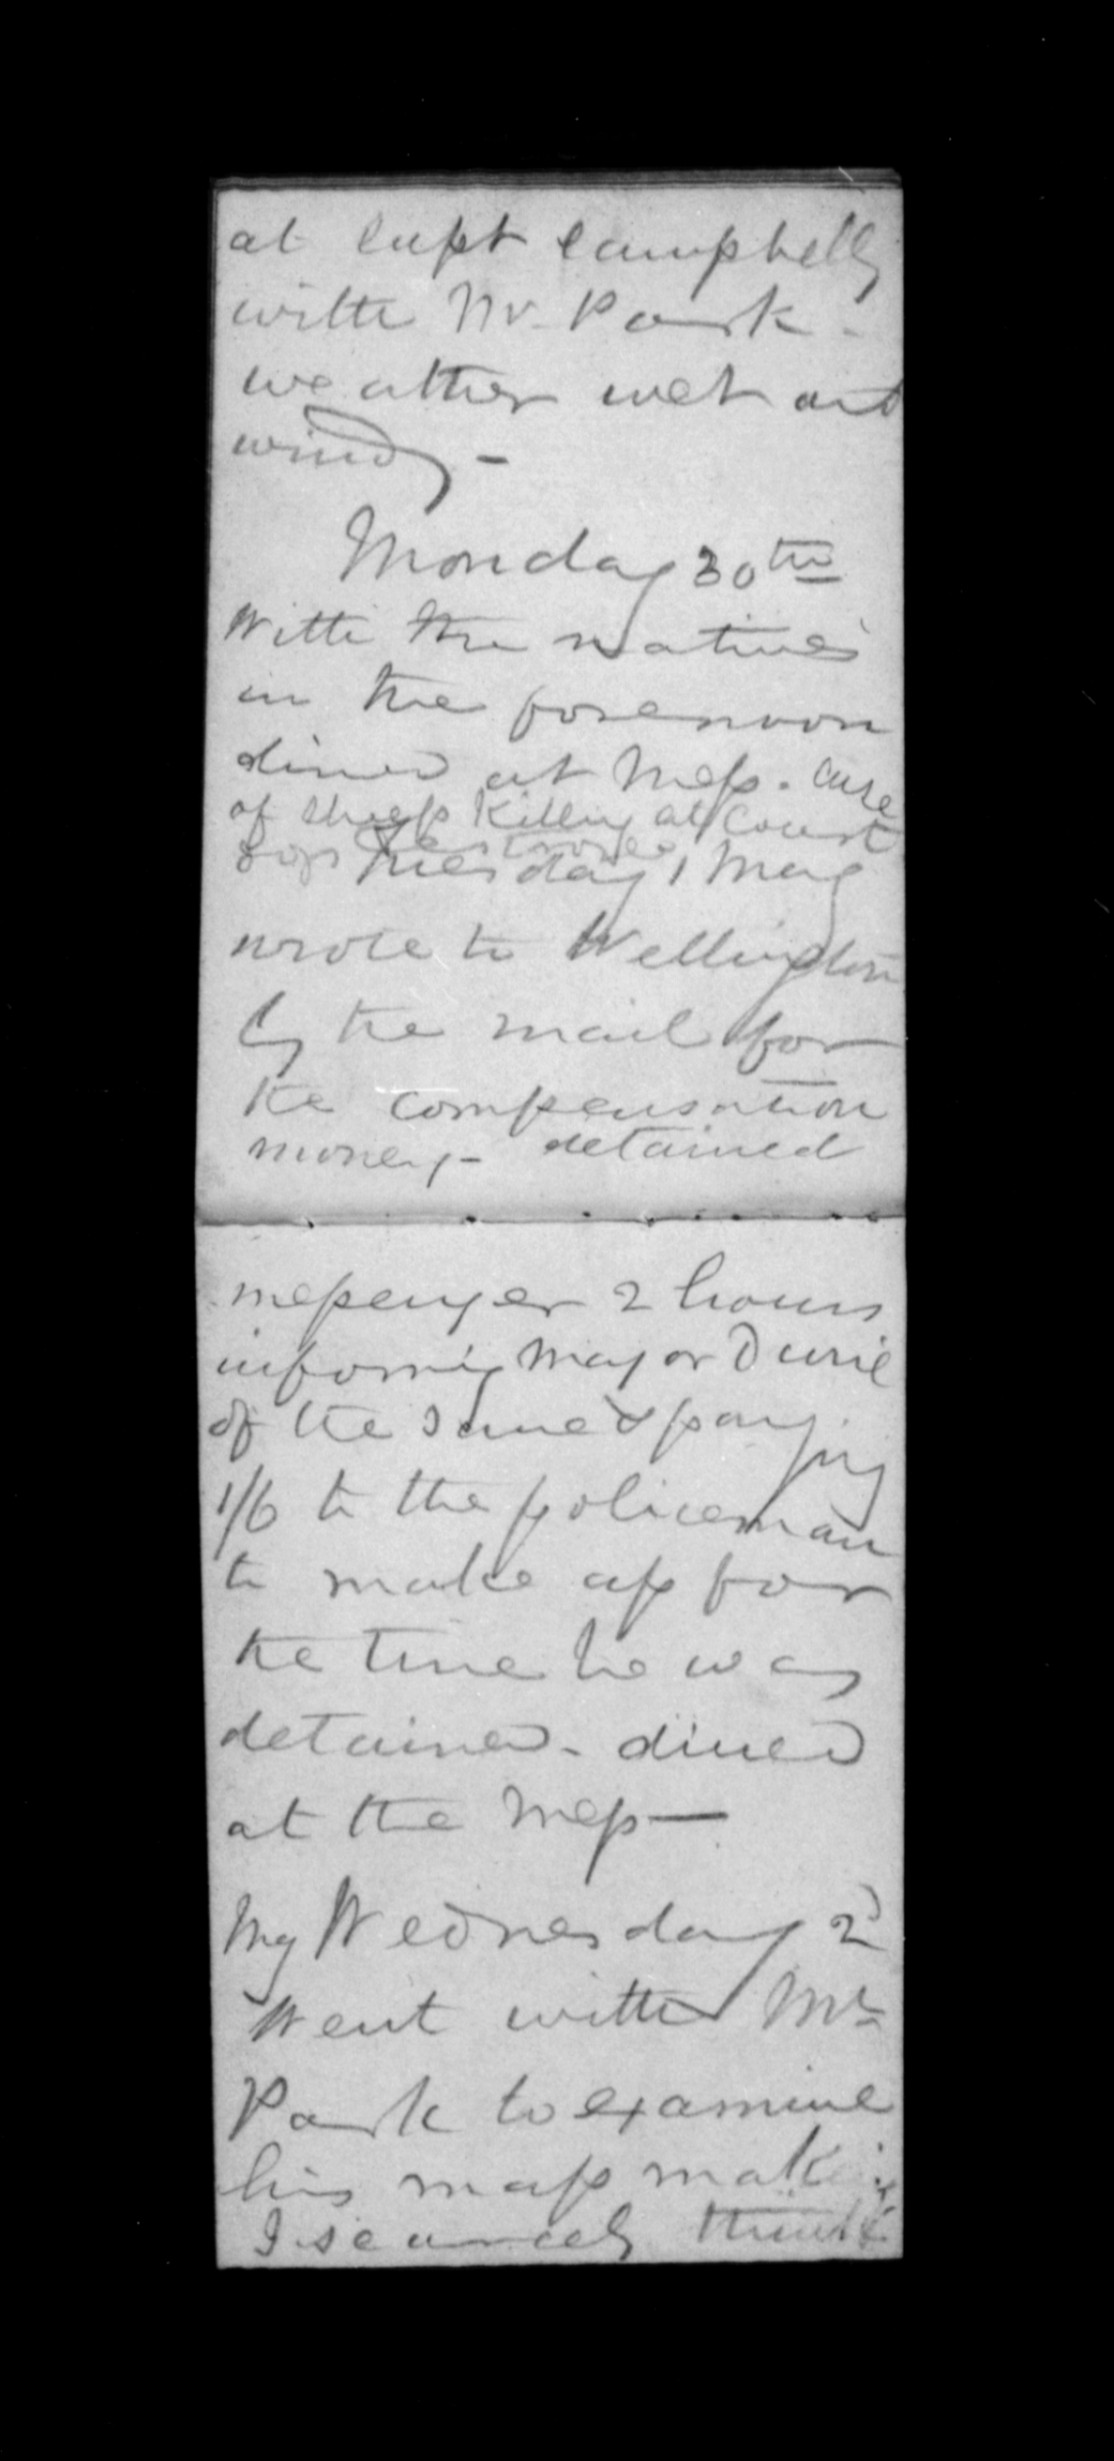 at Capt Campbells
with Mr. Park -
weather wet and
windy -
Monday 30th
With the natives
in the forenoon
dined at Mess. case
of sheep killing at Court
dogs destroyed
Tuesday 1 May
wrote to Wellington
by the mail for
the compensation
money - detained
messenger 2 hours
informing Major Durie
of the same & paying
1/6 to the policeman
to make up for
the time he was
detained - dined
at the Mess —
My Wednesday 2d
Went with Mr
Park to examine
his map make
I scarcely think